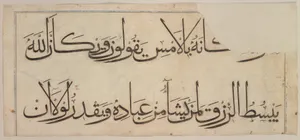 مكانه بالامس يقولون ويكان الله
يبسط الرزق لمن يشا من عباده ويقدر لولا ان